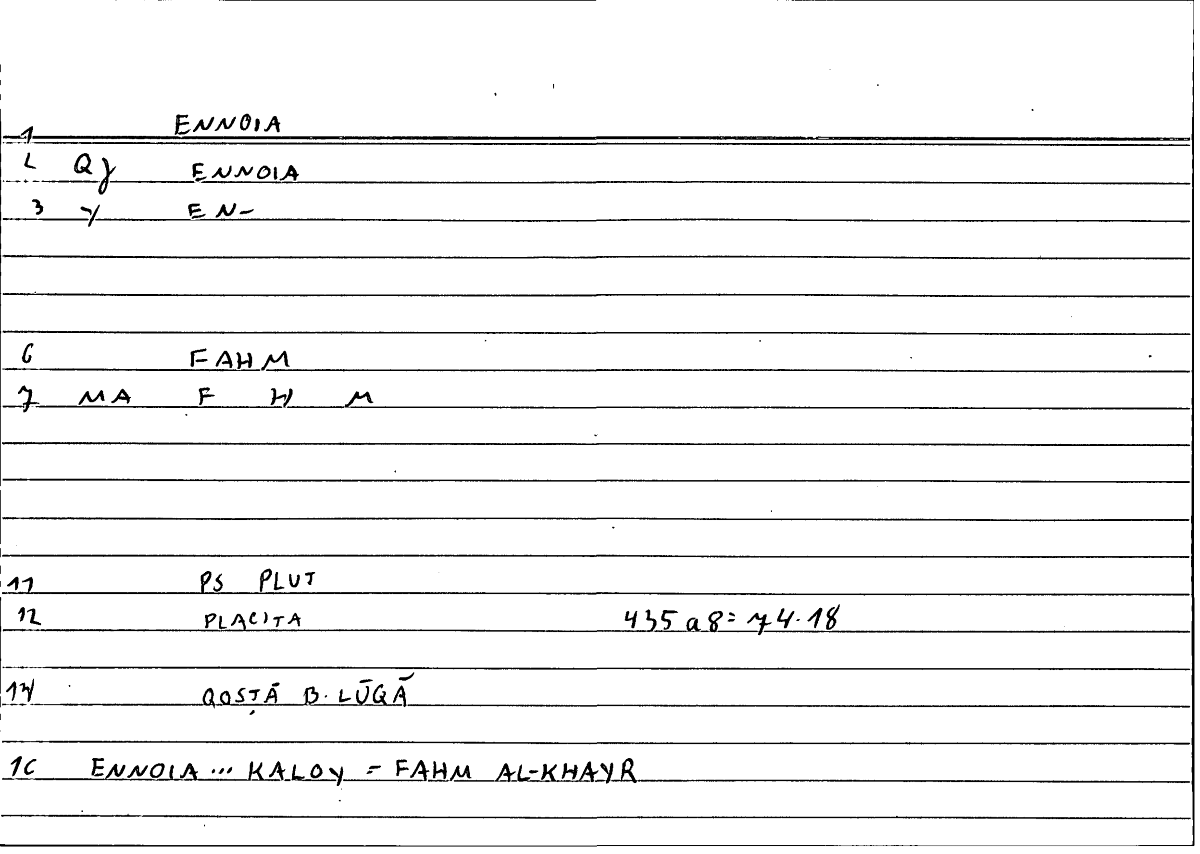 1 ENNOIA
2 Qγ ENNOIA
3 γ EN-
6 FAHM
7 MA F H M
11 PS PLUT
12 PLACITA 435 a 8 = 74.18
14 QOSṬĀ B. LŪQĀ
16 ENNOIA ... KALOY = FAHM AL-KHAYR